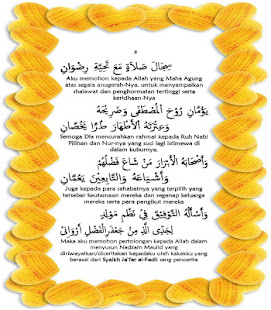 سِجَالَ صَلَاةٍ مَعَ تَحِيَّةِ رِضْوَانِ
Aku memohon kepada Allah yang Maha Agung
atas segala anugerah-Nya, untuk menyampaikan
shalawat dan penghormatan tertinggi serta
keridhaan-Nya
يَؤُمَّانِ رُوْحَ الْمُصْطَفَى وَضَرِيْحَهُ
وَعِتْرَتَهُ الْأَطْهَارَ طُرًّا يَخُصَّانِ
Semoga Dia mencurahkan rahmat kepada Ruh Nabi
Pilihan dan Nur-nya yang suci lagi istimewa di
dalam kuburnya,
وَأَصْحَابَهُ الْأَبْرَارَ مَنْ شَاعَ فَضْلُهُمْ
وَأَشْيَاعَهُ وَالتَّابِعِيْنَ يَعُمَّانِ
Juga kepada para sahabatnya yang terpilih yang
tersebar keutamaan mereka dan segenap keluarga
mereka serta para pengikut mereka
وَأَسْأَلُهُ التَّوْفِيْقَ فِيْ نَظْمِ مَوْلِدٍ
لِجَدِّى الَّذِ مِنْ جَعْفَرِ الْفَضْلِ أَرْوَانِى
Maka aku memohon pertolongan kepada Allah dalam
menyusun Nadzam Maulid yang
diriwayatkan/diceritakan kepadaku oleh kakekku yang
berasal dari Syaikh Ja'far al-Fadil sang pencerita